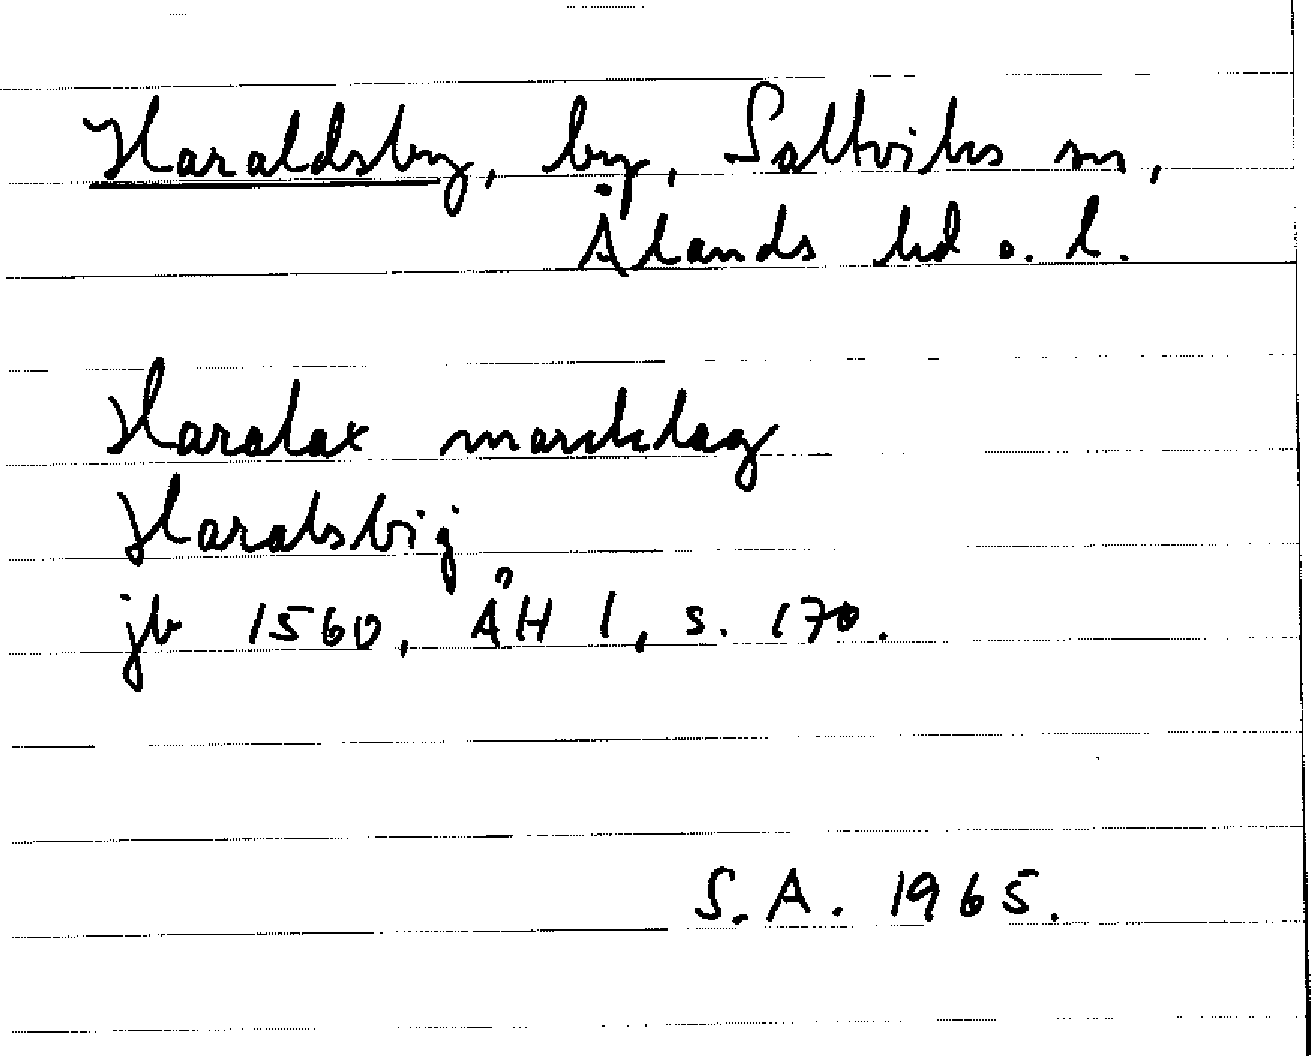 Haraldsby, by, Saltviks sn,
Ålands hd o. l.
Haralax marcklag
Haralsbij
jb 1560, ÅH I, s. 170.
S.A. 1965.